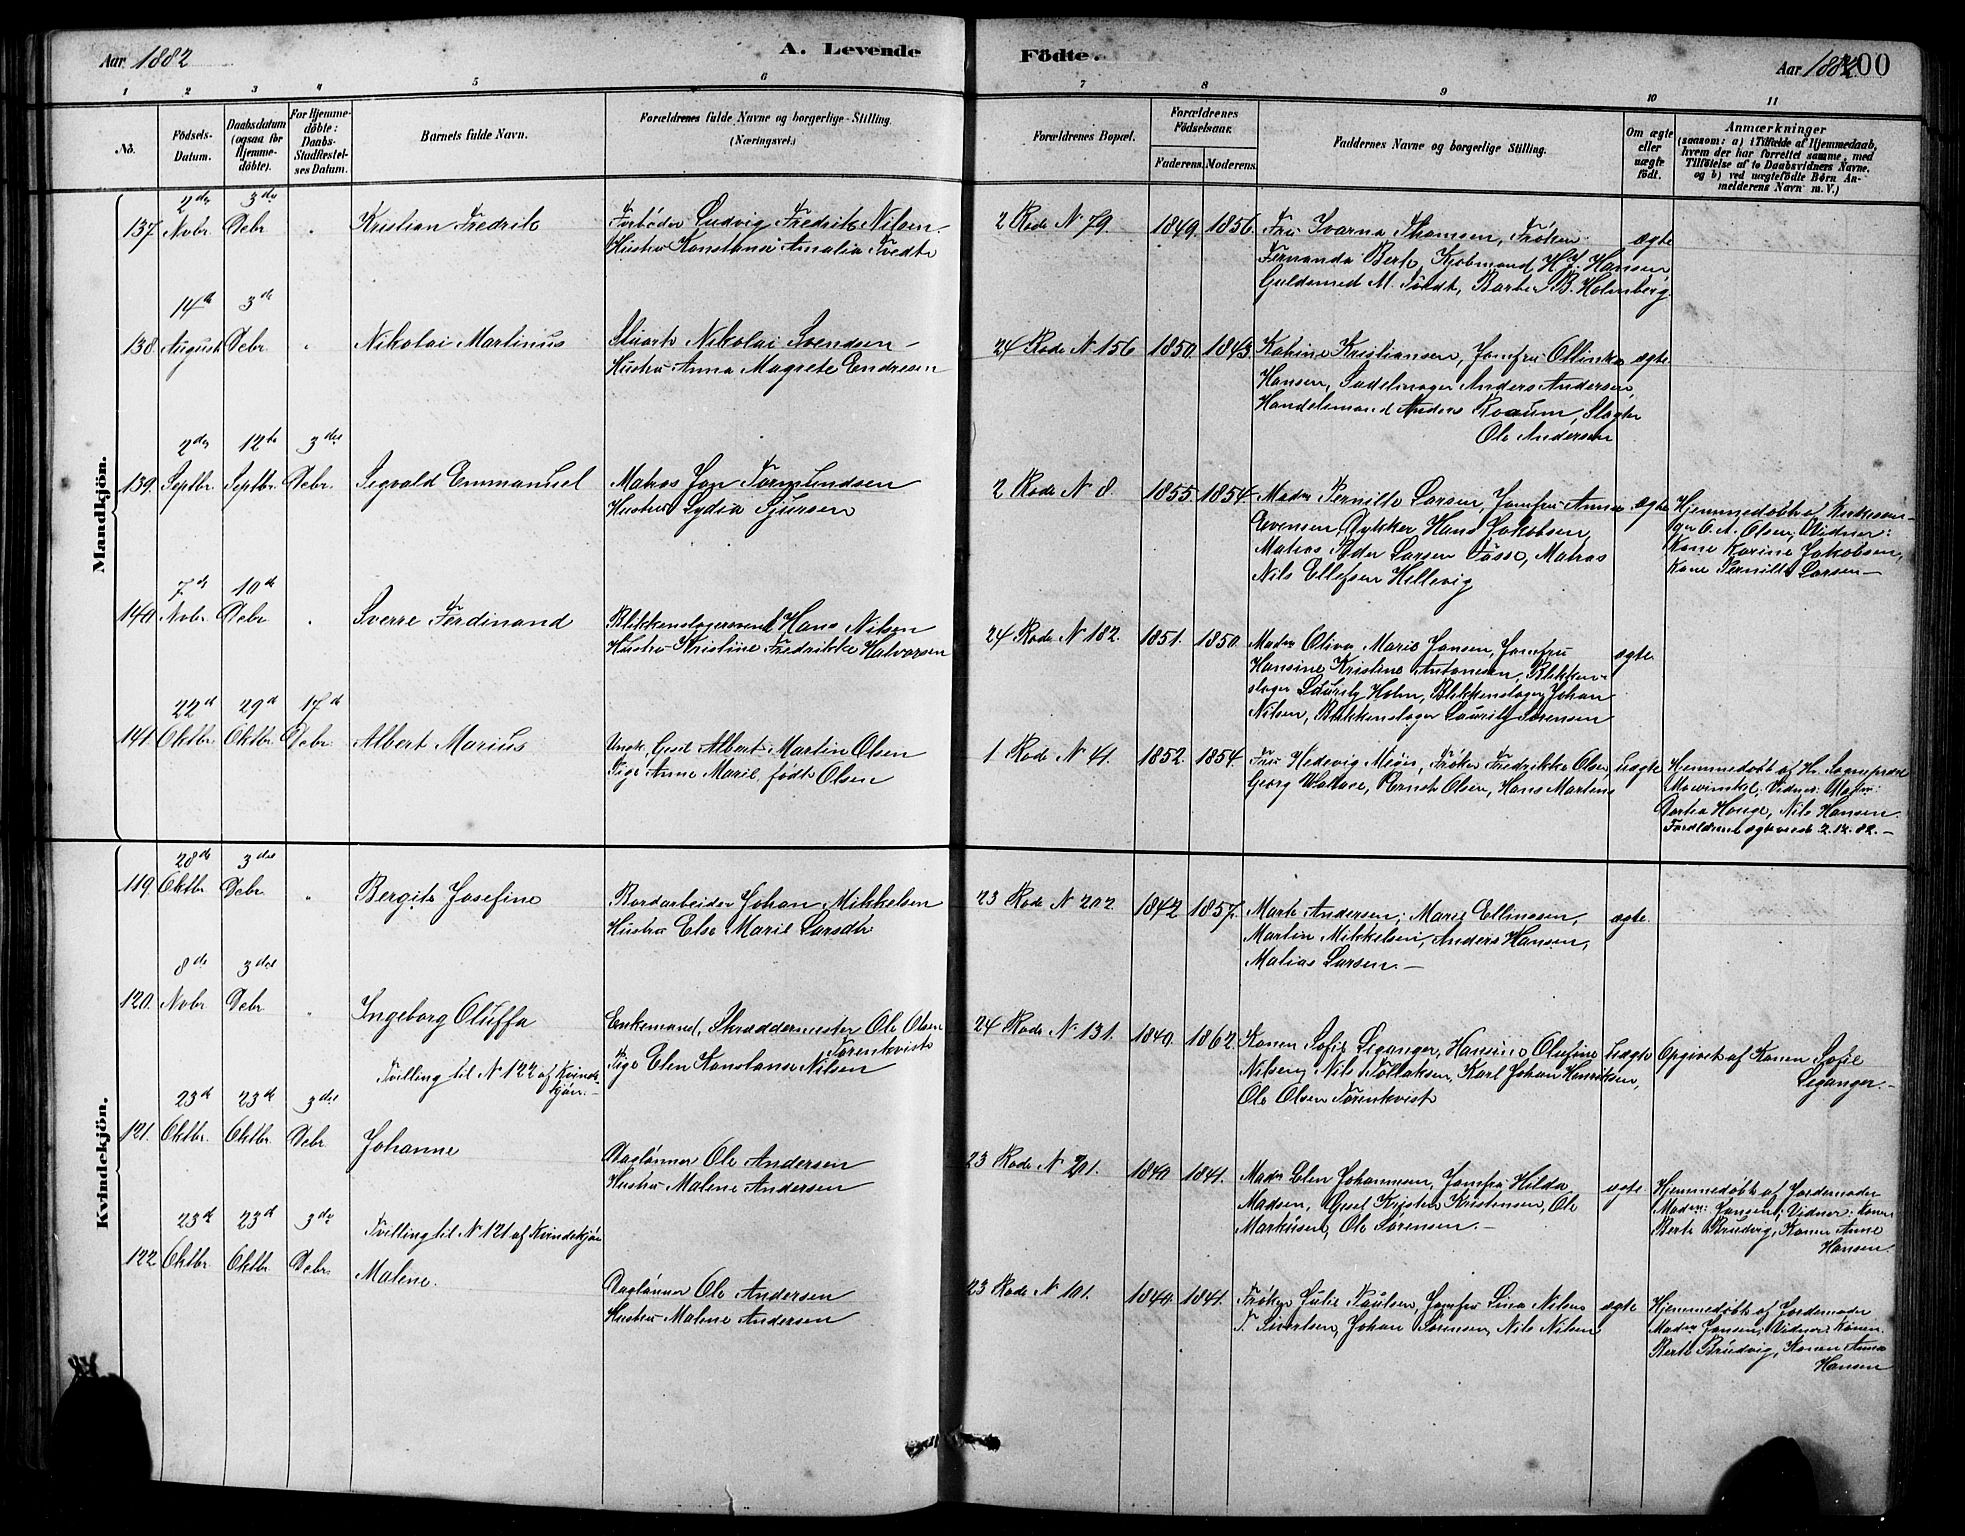 Aar 1882
A. Levende
Födte.
Aar 1882
100
1 2 3 4 5 6 7 8 9 10 11
No.
Födsels-
Datum.
Daabsdatum
(ogsaa for
Hjemme-
döbte).
For Hjemme-
döbte:
Daabs-
Stadfæstel-
ses Datum.
Barnets fulde Navn.
Forældrenes fulde Navne og borgerlige Stilling.
(Næringsvei.)
Forældrenes Bopæl.
Forældrenes
Födselsaar.
Faderens. Moderens.
Faddernes Navne og borgerlige Stilling.
Om ægte
eller
uægte
født.
Anmærkninger
(saasom: a) i Tilfælde af Hjemmedaab,
hvem der har forrettet samme, med
Tilföielse af to Daabsvidners Navne,
og b) ved uægtefödte Börn An-
melderens Navn m. V.)
Mandkjön.
2den 3die
137. Novbr Debr " Kristian Fredrik
Ludvig Fredrik Nilsen
Hustru Konstanse Amalia Tvedt
2 Rode N 79. 1849. 1856.
Fru Ivarna Thomsen, Frøken
Fernanda Berk, Kjøbmand H. J. Hansen,
Guldsmed M. Tvedt, Barber B. Holmberg
ægte
14de 3die
138. August Debr " Nikolai Martinus
Stuart Nikolai Svendsen
Hustru Anna Magrete Endresen
24 Rode N 156 1850. 1843.
Katrine Kristiansen, Jomfru Ollinka
Hansen, Sadelmager Anders Andersen,
Handelsmand Anders Roaum, Slagter
Ole Andersen
ægte
2den 12te 3die
139. Septbr. Septbr. Debr. Sigvald Emmanuel
Matros Jan Tormundsen
Hustru Lydia Sjursen
2 Rode N 8. 1855. 1854
Mad. Pernille Larsen, Jomfru Anna
Evensen, Dykker Hans Jakobsen,
Matros Peder Larsen Tosse, Matros
Nils Ellefsen Hellevig
ægte
Hjemmedøbt af Kirkesan-
ger O. A. Olsen; Vidner:
Kone Karine Jakobsen,
Kone Pernille Larsen —
7de 10de
140. Novbr. Debr " Sverre Ferdinand
Blikkenslagersvend Hans Nilsen
Hustru Kristine Fredrikke Halvorsen
24 Rode N 182. 1851. 1850.
Mad. Oliva Marie Jansen, Jomfru
Hansine Kristine Antonesen, Blikken-
slager Lauritz Holm, Blikkenslager Johan
Nilsen, Blikkenslager Lauritz Sørensen
ægte.
22de 29de 17de
141. Oktbr. Oktbr. Debr. Albert Marius
Ungk. Gesel Albert Martin Olsen
Pige Anne Marie født Olsen
1 Rode N 41. 1852. 1854.
Fru Hedevig Meyer, Frøken Fredrikke Olsen,
Georg Wallace, Bernt Olsen, Hans Martens
Uægte
Hjemmedøbt af Hr. Sogneprest
Mowinkel; Vidner:
Dortea Houge, Nils Hansen.
Forældrene ægteviede 2.12.82. —
Kvindekjön.
28de 3die
119. Oktbr. Debr. " Bergite Josefine
Bordarbeider Johan Mikkelsen
Hustru Else Marie Larsdtr
23 Rode N 202. 1842 1857.
Marte Andersen, Marie Ellingsen,
Martin Mikkelsen, Anders Hansen,
Matias Larsen. —
ægte.
8de 3die
120. Novbr Debr " Ingeborg Oluffa
Enkemand, Skræddermester Ole Olsen
Torenkvist
Pige Elen Konstanse Nilsen
24 Rode N 131. 1849. 1862.
Konen Sofie Leganger, Hansine Olufine
Nilsen, Nils Tollaksen, Karl Johan Henriksen,
Ole Olsen Torenkvist
Uægte
Opgivet af Konen Sofie
Leganger. —
Tvilling til N 122 af Kvinde-
kjøn. —
23de 23de 3die
121. Oktbr. Oktbr. Debr. Johanne
Daglønner Ole Andersen
Hustru Malene Andersen
23 Rode N 201. 1840 1841.
Mad. Elen Johannesen, Jomfru Hilda
Madsen, Gesel Kristen Kristensen, Ole
Markusen, Ole Sørensen. —
ægte
Hjemmedøbt af Jordemoder
Mad. Jansen; Vidner: Konen
Berte Brudvig, Konen Anne
Hansen.
23de 23de 3die
Tvilling til N 121 af Kvindekjøn
122 Oktbr. Oktbr. Debr. Malene.
Daglønner Ole Andersen
Hustru Malene Andersen
23 Rode N 101. 1840. 1841.
Frøken Julie Paulsen, Jomfru Lina Nilsen
T. Sivertsen, Johan Sørensen, Nils Nilsen
ægte
Hjemmedøbt af Jordemoder
Mad. Jansen; Vidner: Konen
Berte Brudvig, Konen Anna
Hansen